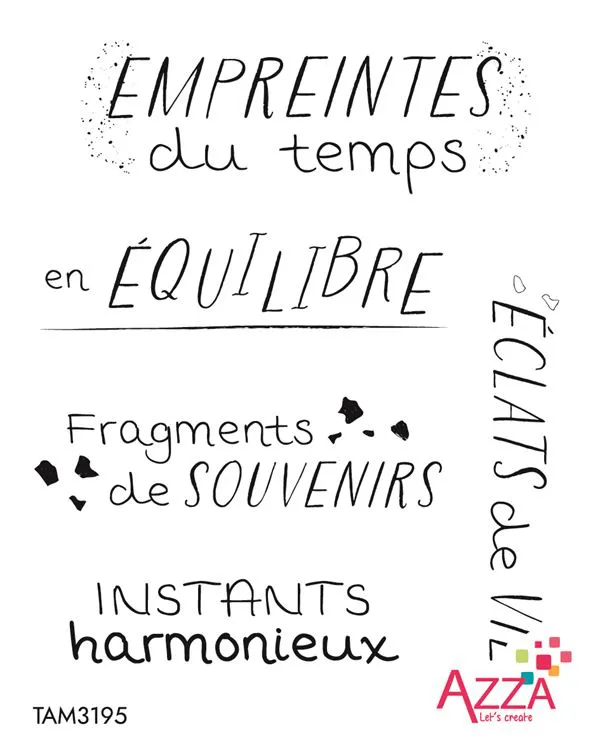 EMPREINTES
du temps
en ÉQUILIBRE
Fragments
de SOUVENIRS
INSTANTS
harmonieux
ÉCLATS de VIL
AZZA
Let's create
TAM3195